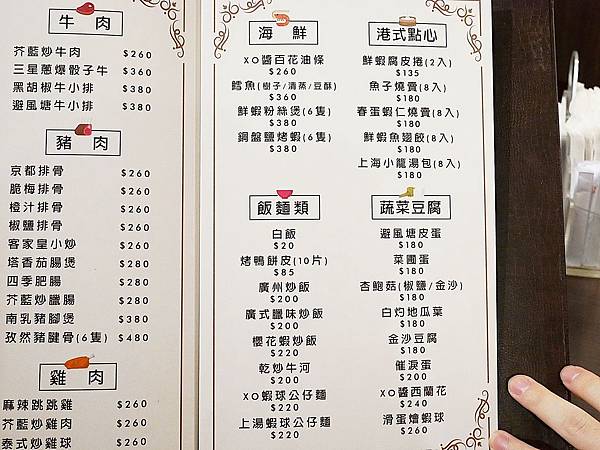 牛 肉
芥藍炒牛肉 $260
三星蔥爆骰子牛 $360
黑胡椒牛小排 $380
避風塘牛小排 $380
豬 肉
京都排骨 $260
脆梅排骨 $260
橙汁排骨 $260
椒鹽排骨 $260
客家皇小炒 $260
塔香茄腸煲 $280
四季肥腸 $280
芥藍炒臘腸 $280
南乳豬腳煲 $380
孜然豬腱骨(6隻) $480
雞 肉
麻辣跳跳雞 $260
芥藍炒雞肉 $260
泰式炒雞球 $260
海 鮮
XO醬百花油條
$260
鱈魚(樹子/清蒸/豆酥)
$360
鮮蝦粉絲煲(6隻)
$380
鋼盤鹽烤蝦(6隻)
$380
飯麵類
白飯
$20
烤鴨餅皮(10片)
$85
廣州炒飯
$200
廣式臘味炒飯
$200
櫻花蝦炒飯
$220
乾炒牛河
$200
XO蝦球公仔麵
$220
上湯蝦球公仔麵
$220
港式點心
鮮蝦腐皮捲(2入)
$135
魚子燒賣(8入)
$180
春蛋蝦仁燒賣(8入)
$180
鮮蝦魚翅餃(8入)
$180
上海小龍湯包(8入)
$180
蔬菜豆腐
避風塘皮蛋
$180
菜圃蛋
$180
杏鮑菇(椒鹽/金沙)
$180
白灼地瓜葉
$180
金沙豆腐
$180
催淚蛋
$200
XO醬西蘭花
$240
滑蛋燴蝦球
$260